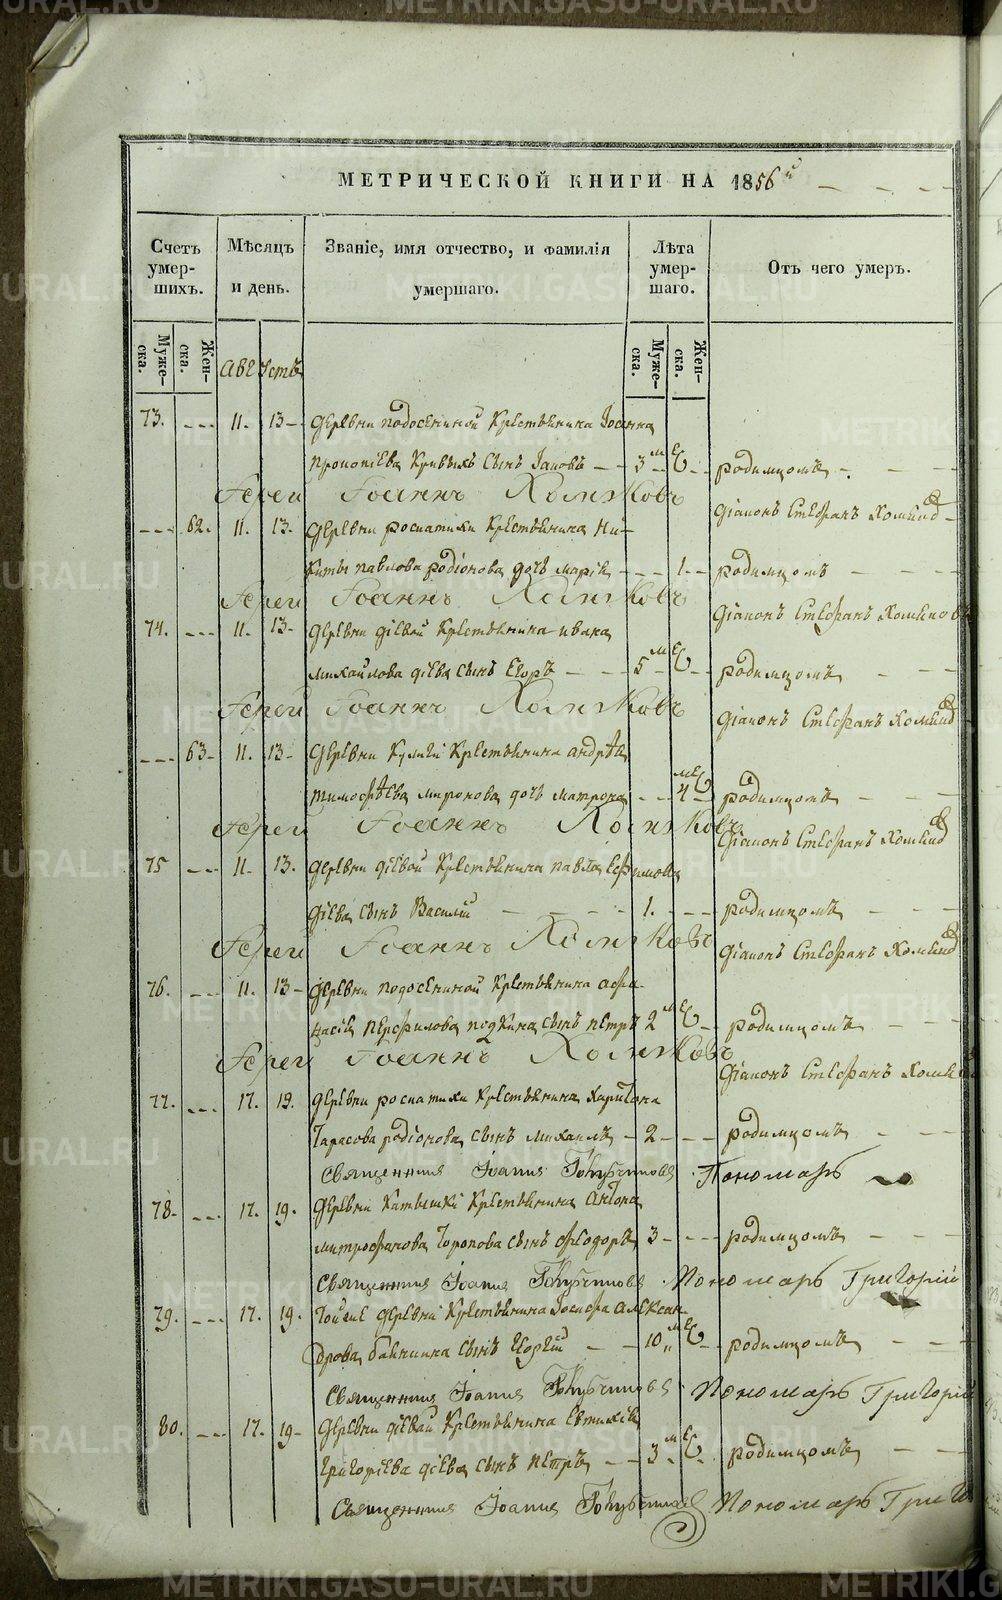 МЕТРИЧЕСКОЙ КНИГИ НА 1856й
Счетъ умер- шихъ.
Мѣсяцъ и день.
Званіе, имя отчество, и фамилія умершаго.
Лѣта умер- шаго.
Отъ чего умеръ.
Муже- ска.
Жен- ска.
Муже- ска.
Жен- ска.
Августъ
73. 11. 13 деревни подосениной Крестьянина Іоанна
Прокопіева Кривыхъ сынъ Іаковъ 3 ме родимцомъ
Іерей Іоаннъ Хомяковъ діаконъ Стефанъ
62. 11. 13. деревни роскатихи Крестьянина Ни-
киты павлова родіонова дочь марія 1 родимцомъ
Іерей Іоаннъ Хомяковъ діаконъ Стефанъ
74. 11. 13. деревни діевой Крестьянина ивана
михайлова діева сынъ Егоръ 5 ме родимцомъ
Іерей Іоаннъ Хомяковъ діаконъ Стефанъ
63 11. 13 деревни Кулиги Крестьянина андрѣя
тимофѣева миронова дочь матрона 4 ме родимцомъ
Іерей Іоаннъ Хомяковъ діаконъ Стефанъ
75 11. 13. деревни діевой Крестьянина павла Ефимова
діева сынъ Василій 1. родимцомъ
Іерей Іоаннъ Хомяковъ діаконъ Стефанъ
76. 11. 13 деревни подосениной Крестьянина афа-
насія Перфилова сынъ петръ 2 ме родимцомъ
Іерей Іоаннъ Хомяковъ діаконъ Стефанъ
77. 17. 19. деревни роскатихи Крестьянина Харитона
Тарасова родіонова сынъ михаилъ 2 родимцомъ
Священникъ Іоаннъ Пономарь
78. 17. 19. деревни Крестьянина Антона
митрофанова Торопова сынъ феодоръ 3 родимцомъ
Священникъ Іоаннъ Пономарь Григорій
79. 17. 19. Тойже деревни Крестьянина Іосифа алексан-
дрова сынъ Георгій 10 ме родимцомъ
Священникъ Іоаннъ Пономарь Григорій
80. 17. 19 деревни діевой Крестьянина Евтихія
Григорьева діева сынъ петръ 3 ме родимцомъ
Священникъ Іоаннъ Пономарь
METRIKI.GASO-URAL.RU